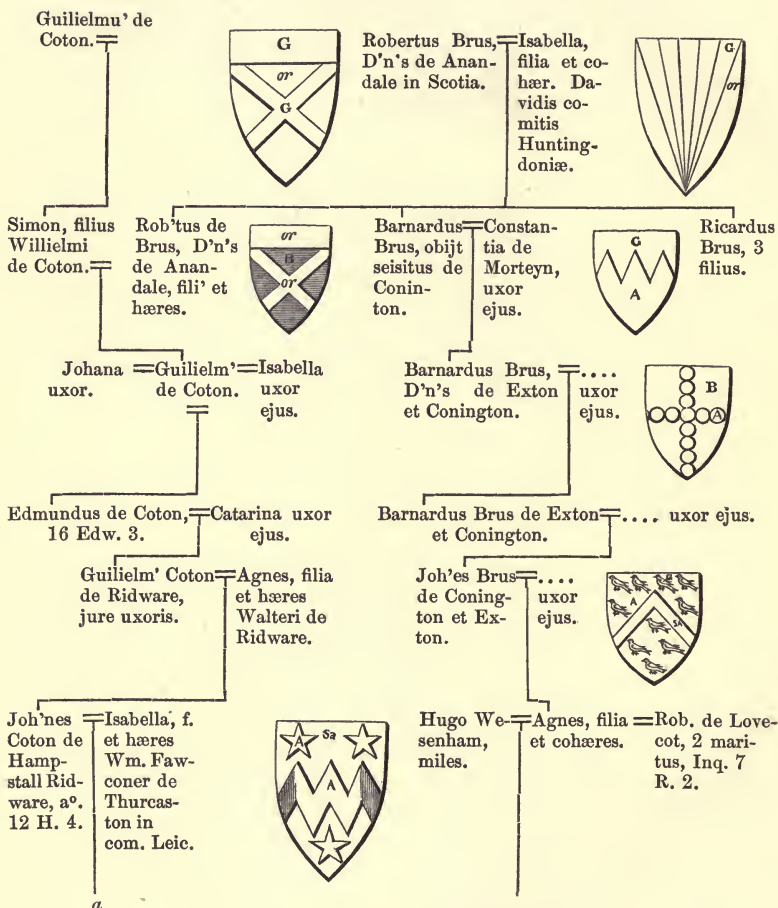 Guilielmu' de
Coton.
G
or
G
Robertus Brus,
D'n's de Anan-
dale in Scotia.
Isabella,
filia et co-
hær. Da-
vidis co-
mitis
Hunting-
doniæ.
G
or
Simon, filius
Willielmi
de Coton.
Rob'tus de
Brus, D'n's
de Anan-
dale, fili' et
hæres.
or
B
or
Barnardus
Brus, obijt
seisitus de
Conin-
ton.
Constan-
tia de
Morteyn,
uxor
ejus.
G
A
Ricardus
Brus, 3
filius.
Johana
uxor.
Guilielm'
de Coton.
Isabella
uxor
ejus.
Barnardus Brus,
D'n's de Exton
et Conington.
....
uxor
ejus.
B
A
Edmundus de Coton,
16 Edw. 3.
Catarina uxor
ejus.
Barnardus Brus de Exton
et Conington.
.... uxor ejus.
Guilielm' Coton
de Ridware,
jure uxoris.
Agnes, filia
et hæres
Walteri de
Ridware.
Joh'es Brus
de Coning-
ton et Ex-
ton.
....
uxor
ejus.
A
SA
Joh'nes
Coton de
Hamp-
stall Rid-
ware, aº.
12 H. 4.
Isabella, f.
et hæres
Wm. Faw-
coner de
Thurcas-
ton in
com. Leic.
A
Sa
A
Hugo We-
senham,
miles.
Agnes, filia
et cohæres.
Rob. de Love-
cot, 2 mari-
tus, Inq. 7
R. 2.
a